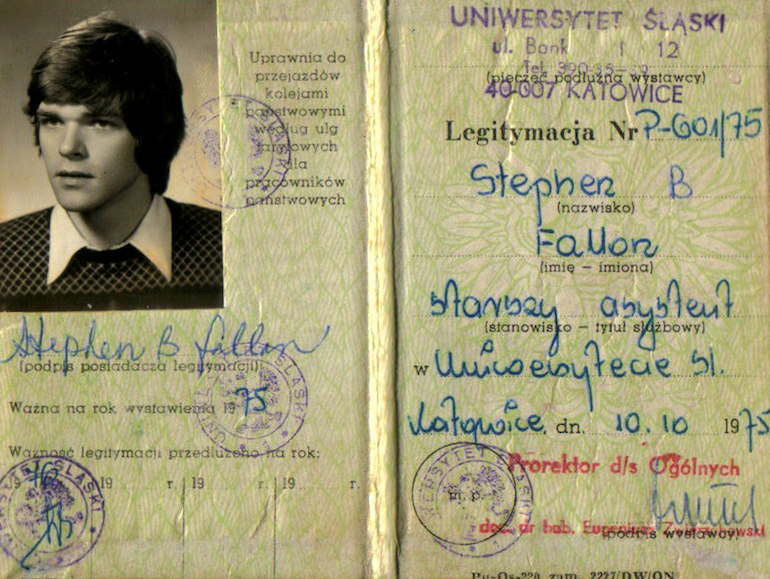 Uprawnia do
przejazdów
kolejami
państwowymi
według ulg
taryfowych
dla
pracowników
państwowych
Stephen B Fallon
(podpis posiadacza legitymacji)
Ważna na rok wystawienia 1975
Ważność legitymacji przedłużono na rok:
19 r. 19 r. 19 r.
UNIWERSYTET ŚLĄSKI
ul. Bank 12
Tel. 390-35-
(pieczęć podłużna wystawcy)
40-007 KATOWICE
Legitymacja Nr P-601/75
Stephen B
(nazwisko)
Fallon
(imię — imiona)
starszy asystent
(stanowisko — tytuł służbowy)
w Uniwersytecie Śl.
Katowice, dn. 10.10 1975
Prorektor d/s Ogólnych
m. p.
doc. dr hab. Eugeniusz
(podpis wystawcy)
Pu-Os-220 zam. 2227/DW/ON